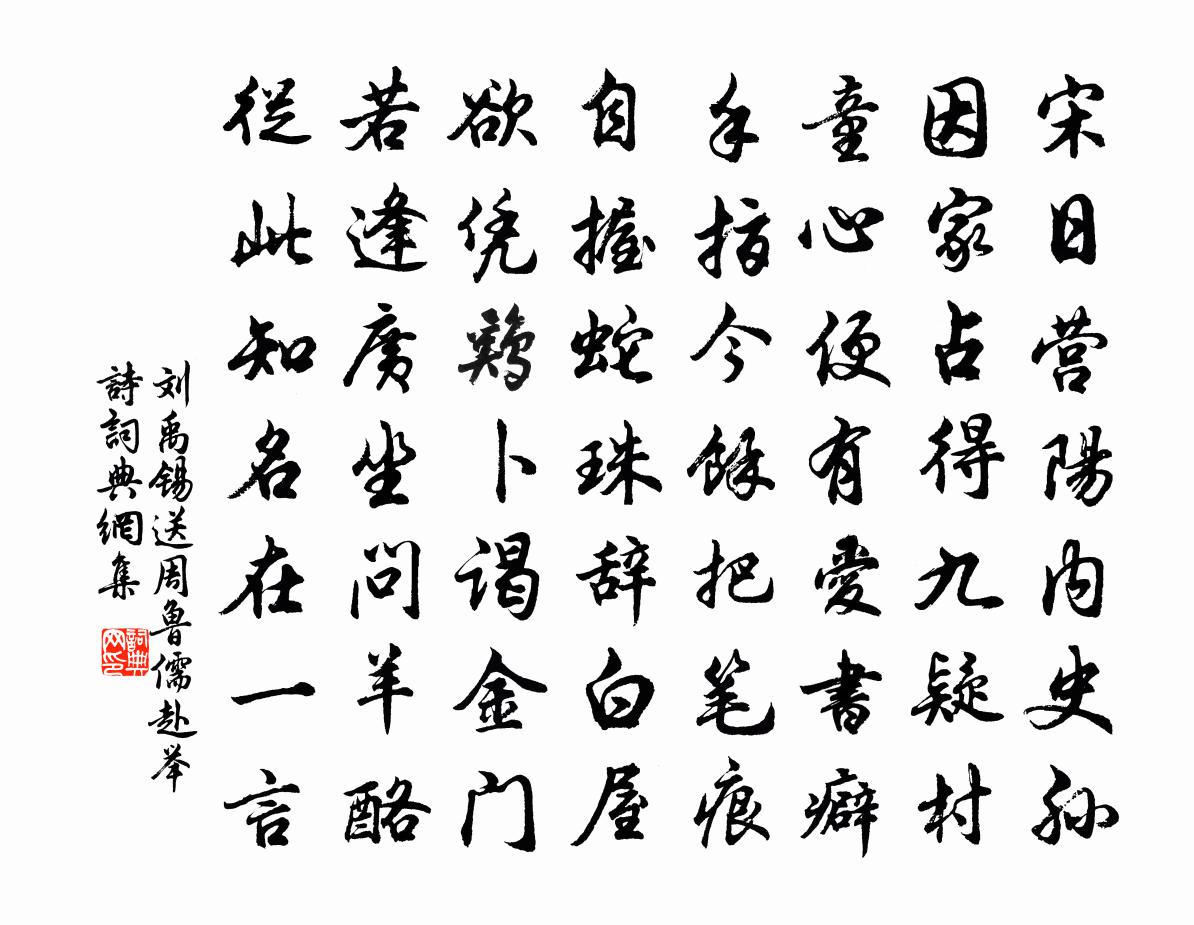 宋日营陽内史孙
因家占得九疑村
童心便有愛書癖
手指今餘把笔痕
自握蛇珠辞白屋
欲凭鷄卜谒金门
若逢广坐问羊酪
從此知名在一言
刘禹锡送周魯儒赴举
詩詞典網集
詞典网印